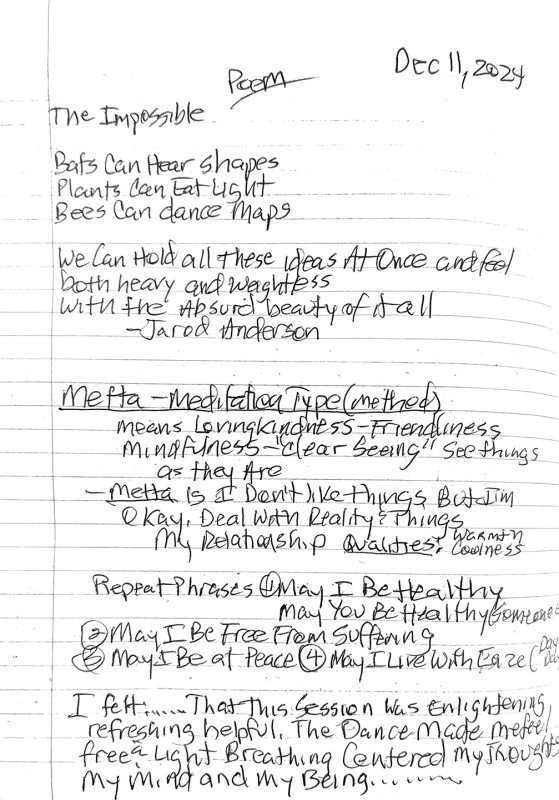 Dec 11, 2024
Poem
The Impossible
Bats Can Hear shapes
Plants Can Eat Light
Bees Can dance Maps
We Can Hold all These ideas At Once and feel
both heavy and weightless
with the Absurd beauty of it all
-Jarod Anderson
Metta - Meditation Type (method)
means Lovingkindness - Friendliness
Mindfulness - "Clear Seeing" See things
as they Are
- Metta Is I Don't like things But I'm
Okay, Deal With Reality & Things
My Relationship Qualities: Warmth
Coolness
Repeat Phrases ① May I Be Healthy
May You Be Healthy (Someone
② May I Be Free From Suffering
③ May I Be at Peace ④ May I Live With Eaze (Day
I felt...... That this Session was Enlightening,
refreshing helpful. The Dance Made me feel
free & Light Breathing Centered My Thoughts
My Mind and my Being.........